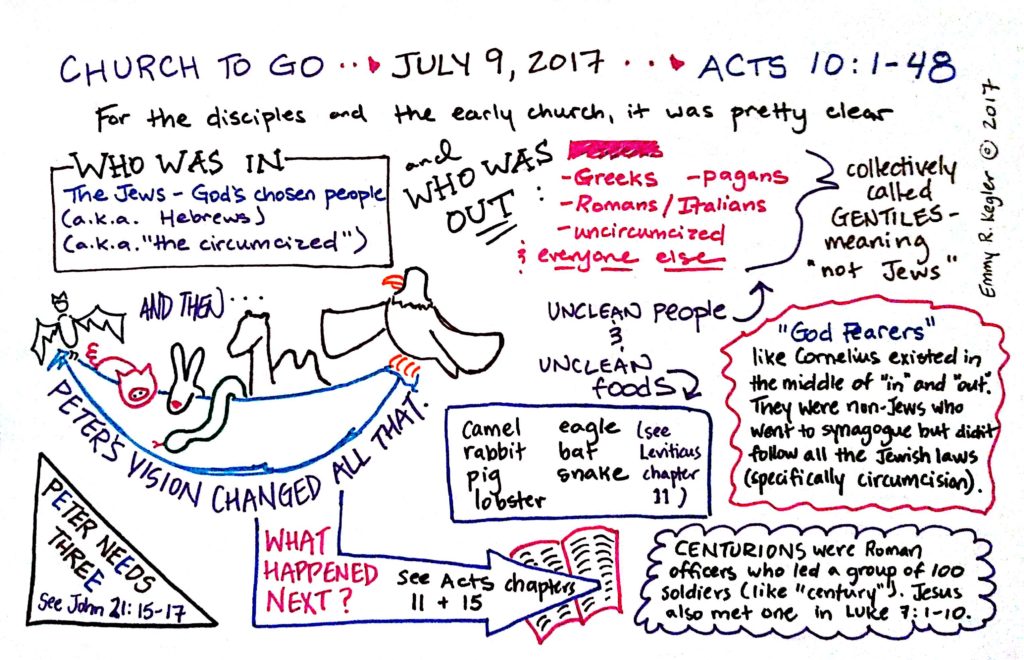 CHURCH TO GO ··· JULY 9, 2017 ··· ACTS 10:1-48
For the disciples and the early church, it was pretty clear
WHO WAS IN
The Jews - God's chosen people
(a.k.a. Hebrews)
(a.k.a. "the circumcized")
and
WHO WAS
OUT:
-Greeks -pagans
-Romans/Italians
-uncircumcized
& everyone else
collectively
called
GENTILES-
meaning
"not Jews"
Emmy R. Kegler © 2017
AND THEN...
PETER'S VISION CHANGED ALL THAT.
UNCLEAN PEOPLE
&
UNCLEAN
FOODS
camel eagle (see
rabbit bat Leviticus
pig snake chapter
lobster 11)
"God Fearers"
like Cornelius existed in
the middle of "in" and "out".
They were non-Jews who
went to synagogue but didn't
follow all the Jewish laws
(specifically circumcisian).
PETER NEEDS
THREE
see John 21:15-17
WHAT
HAPPENED
NEXT?
see Acts chapters
11 + 15
CENTURIONS were Roman
officers who led a group of 100
soldiers (like "century"). Jesus
also met one in Luke 7:1-10.